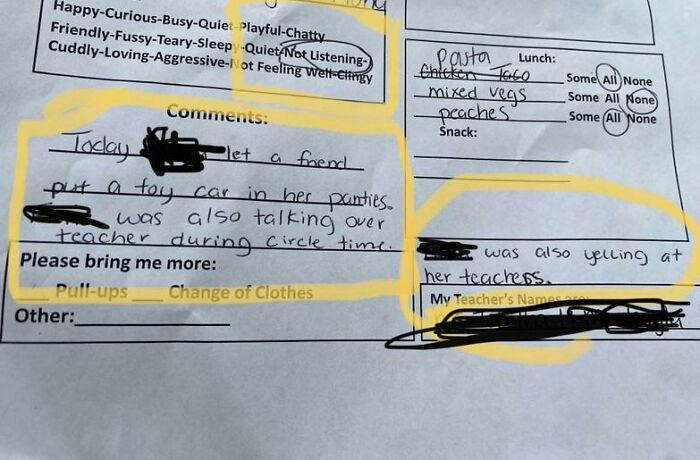 Happy-Curious-Busy-Quiet-Playful-Chatty
Friendly-Fussy-Teary-Sleepy-Quiet-Not Listening-
Cuddly-Loving-Aggressive-Not Feeling Well-Clingy
Comments:
Today let a friend
put a toy car in her panties.
was also talking over
teacher during circle time.
Please bring me more:
___ Pull-ups ___ Change of Clothes
Other:
Lunch:
Pasta
Chicken Taco Some All None
mixed vegs Some All None
peaches Some All None
Snack:
was also yelling at
her teachers.
My Teacher's Names are: